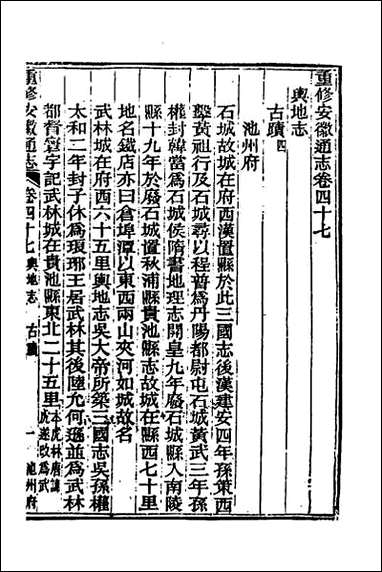 重修安徽通志卷四十七
輿地志
古蹟四
池州府
石城故城在府西漢置縣於此三國志後漢建安四年孫策西
擊黃祖行及石城尋以程普爲丹陽都尉屯石城黃武三年孫
權封韓當爲石城侯隋書地理志開皇九年廢石城縣入南陵
縣十九年於廢石城置秋浦縣貴池縣志故城在縣西七十里
地名鐵店亦曰倉埠潭以東西兩山夾河如城故名
武林城在府西六十五里輿地志吳大帝所築三國志吳孫權
太和二年封子休爲琅琊王居武林其後陸允何遜並爲武林
都督寰宇記武林城在貴池縣東北二十五里本虎林唐諱虎遂改爲武
重修安徽通志
卷四十七輿地志 古蹟 一 池州府